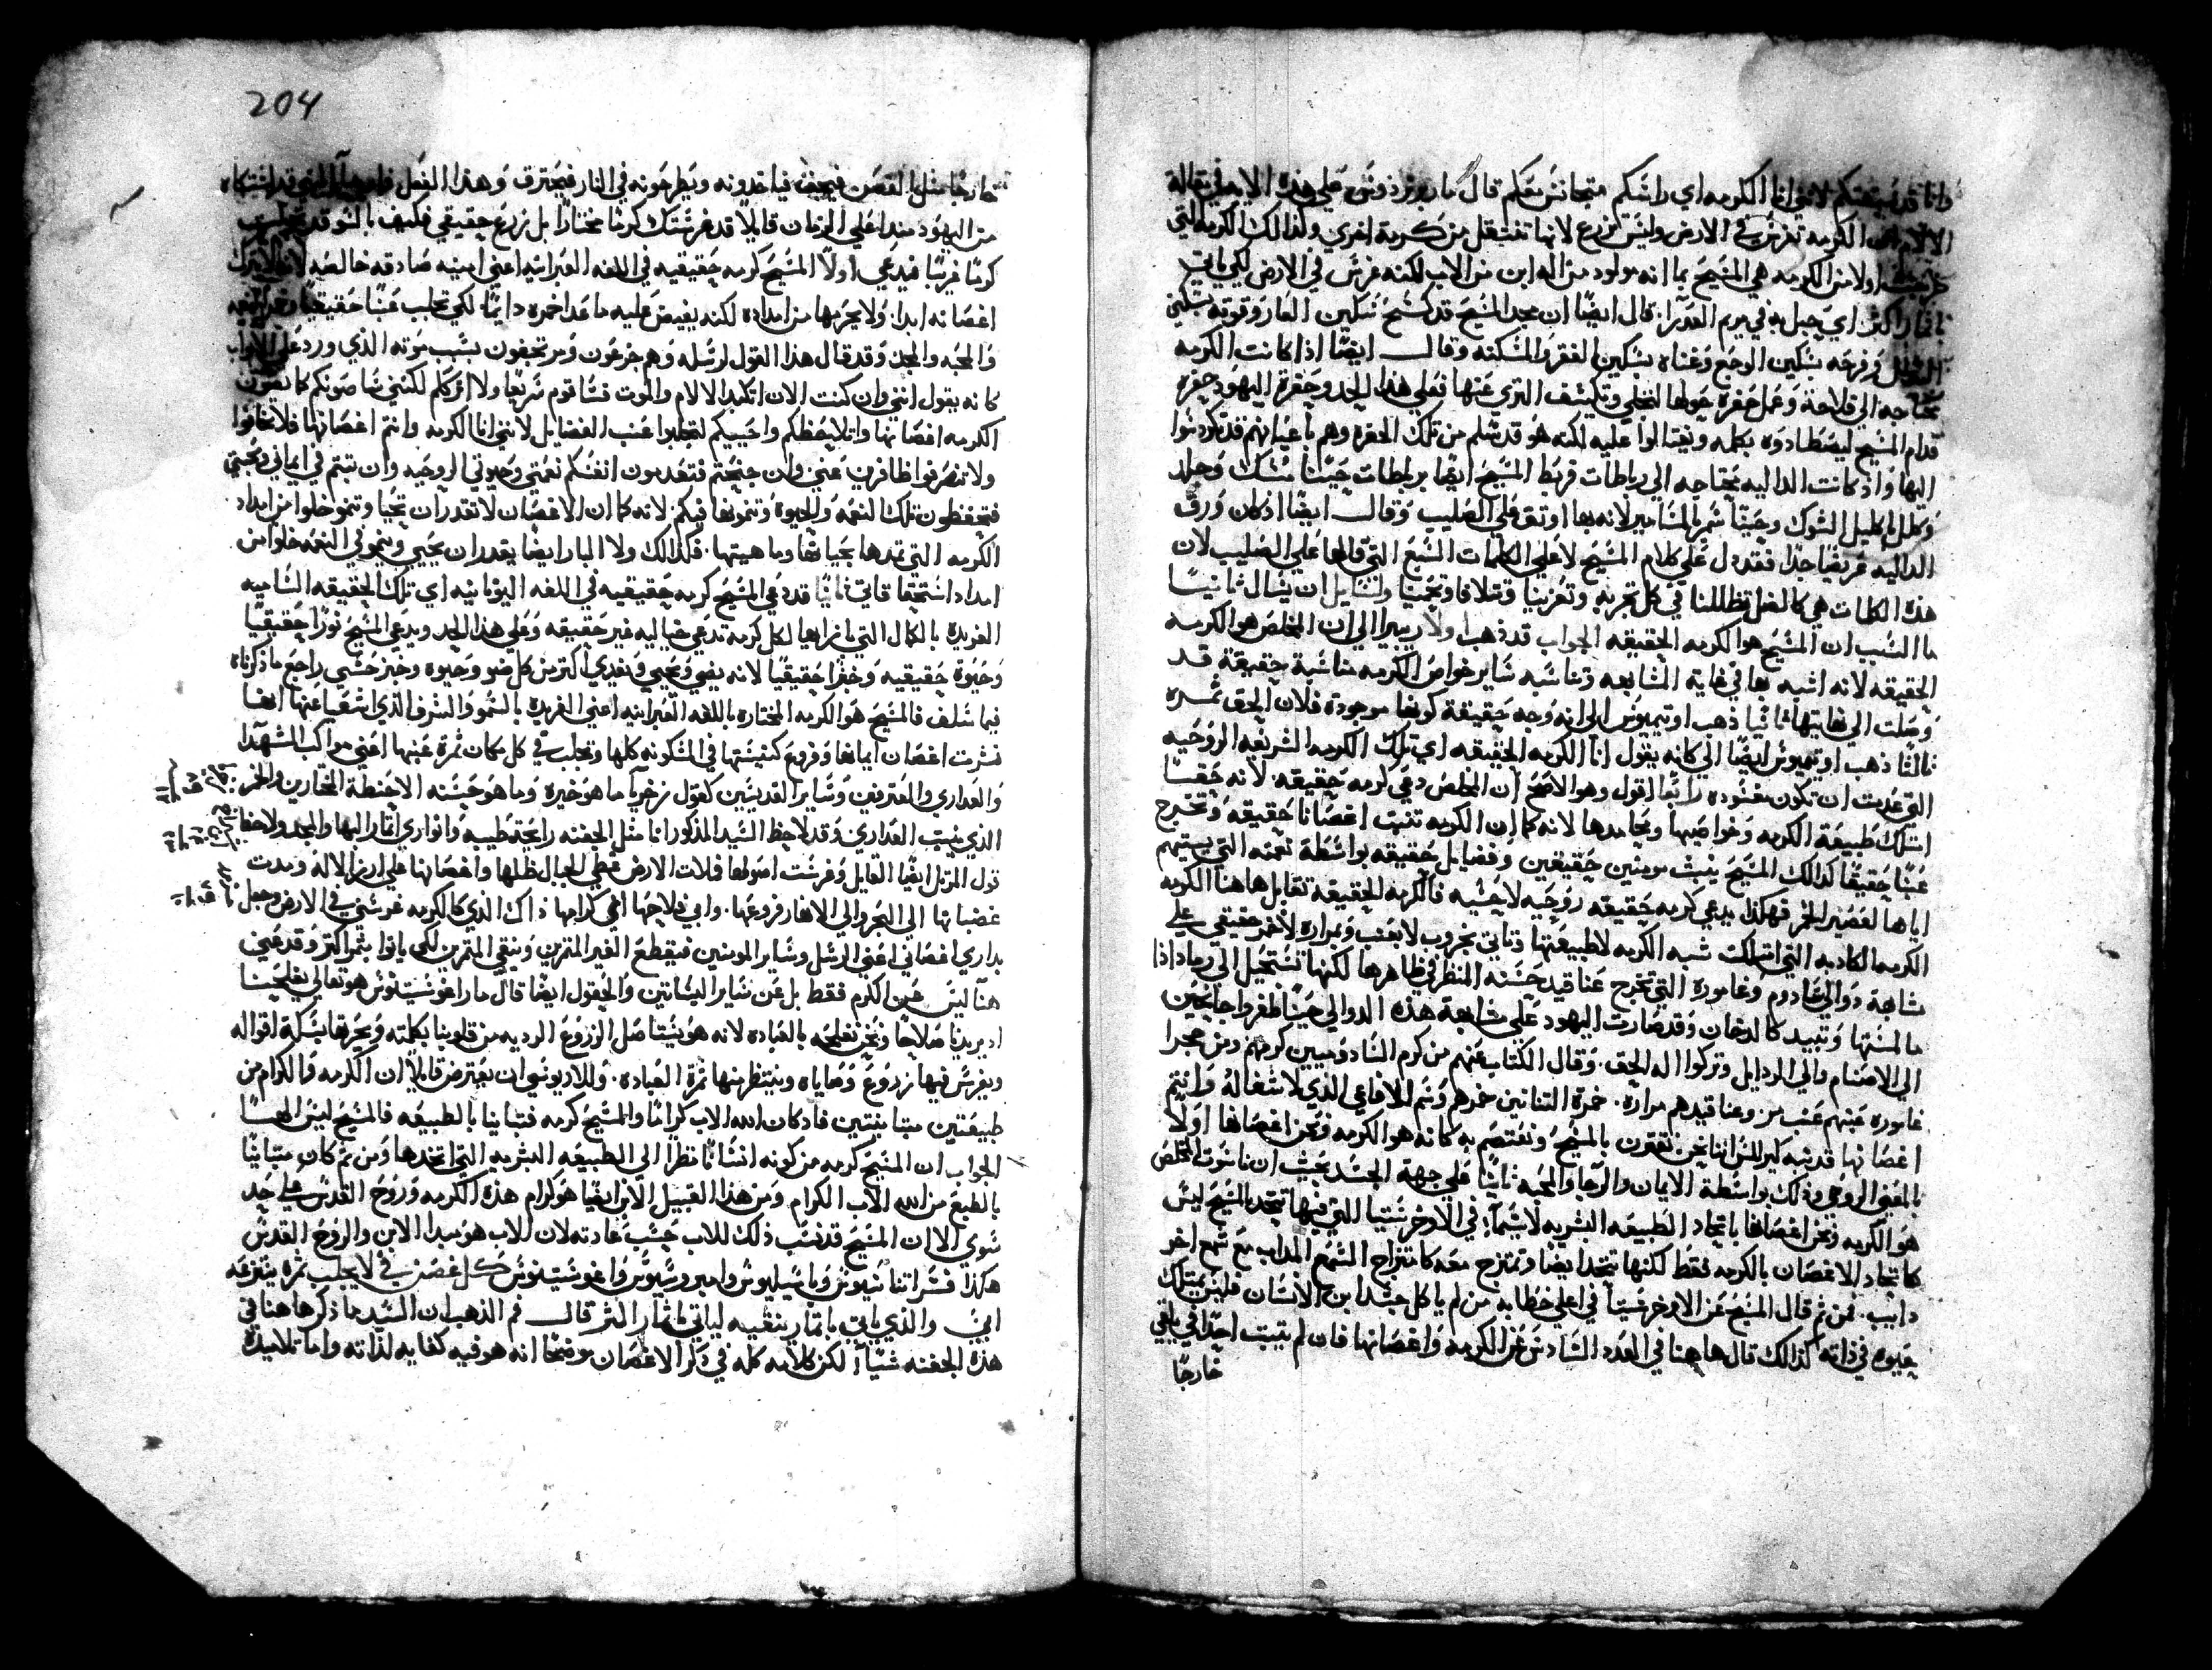 وانا قد سبقتكم لانني انا الكرمه اي راسكم متجانس معكم قال مار برنردوس علي هذه الايه في مقالة
الالام الكرمه تغرس في الارض وليس تزرع لانها تنتقل من كرمة اخري وكذالك الكرمه التي
خرجت اولا من الكرمه هي المسيح بما انه مولود من اله ابن من الاب لكنه غرس في الارض لكي ياتي
باثمار اكثر اي حبل به في مريم العذرآ. قال ايضًا ان مجد المسيح قد كسح بسكين العار وقوته بسكين
الذل وفرحه بسكين الوجع وغناه بسكين الفقر والمسكنه وقال ايضًا اذا كانت الكرمه
تحتاجه الي فلاحة وعمل حفرة حولها لتخلي وتكشف الثري عنها فعلي هذا الحد وحفرة اليهود حفره
قدام المسيح ليصطادوه بكلمه ويغتالوا عليه لكنه هو قد سلم من تلك الحفره وهم باعيانهم قد تكردسوا
اليها واذ كانت الداليه تحتاجه الي رباطات فربط المسيح ايضًا برباطات حينًا مسك وجلد
وكلل باكليل الشوك وحينًا سمر بالمسامير لانه بها اوثق علي الصليب وقال ايضًا اذ كان ورق
الداليه عريضًا جدًا فقد دل علي كلام المسيح لا علي الكلمات السبع التي قالها علي الصليب لان
هذه الكلمات هي كالظل تظللنا في كل تجربه وتعزينا وتلافا وتحمينا ولسايل ان يسال ثانيًا
ما السبب ان المسيح هو الكرمه الحقيقه الجواب قد ذهب اولًا ريبيرا الي ان المخلص هو الكرمه
الحقيقه لانه اشبه بها في غاية المشابهه وتناسبه ساير خواص الكرمه مناسبة حقيقة قد
وصلت الي نهايتها ثانيًا ذهب اوتيميوس الي انه وجه حقيقة كونها موجودة فلان الحق ثمره
ثالثًا ذهب اوتيميوس ايضًا الي كانه يقول انا الكرمه الحقيقه اي تلك الكرمه الشريفه الروحيه
التي عدت ان تكون مغشوده رابعًا القول وهو الاصح ان المخلص دعي كرمه حقيقه. لانه حقًا
امتلك طبيعة الكرمه وخواصها ومحامدها لانه كما ان الكرمه تنبت اغصانا حقيقه وتخرج
عنبًا حقيقًا كذالك المسيح ينبت مومنين حقيقين وفضايل حقيقه بواسطة نعمته التي يسقيهم
اياها لعصير الخمر فهكذا يدعي كرمه حقيقه روحيه لا حسيه فالكرمه الحقيقه تقابل هاهنا الكرمه
الكرمه الكاذبه التي امتلكت شبه الكرمه لا طبيعتها وتاتي بخروب لا بعنب وبمراره لا خمر حقيقي علي
مشابهة دوالي سادوم وعاموره التي تخرج عناقيد حسنه المنظر في ظاهرها لكنها تستحيل الي رماد اذا
ما لمستها وتبيد كالدخان وقد صارت اليهود علي مشابهة هذه الدوالي حينًا طغروا جانحين
الي الاصنام والي الرذايل وتركوا اله الحق. وقال الكتاب عنهم من كرم السادوميين كرمهم ومن مجرا
عاموره عنبهم عنب مر. وعناقيدهم مراره. خمرة التنانين خمرهم وسم الافاعي الذي لا شفا له وانتم
اغصانها قد نبه كيرللس اننا نحن نقترن بالمسيح ونعتصم به كانه هو الكرمه ونحن اغصانها اولًا
بالمعني الروحي وذلك بواسطة الايمان والرجا والمحبه ثانيًا علي جهة الجسد بحيث ان ناسوت المخلص
هو الكرمه ونحن اغصانها باتحاد الطبيعه البشريه لا سيما في الاوخرستيا التي فيها نتحد بالمسيح ليس
كاتحاد الاغصان بالكرمه فقط لكنها تتحد ايضًا وتمتزج معه كامتزاج الشمع المذاب مع شمع اخر
دايب. فمن ثم قال المسيح عن الاوخرستيا في اعلي خطابه من لم ياكل جسد ابن الانسان فليس يمتلك
حيوه في ذاته كذالك قال هاهنا في العدد السادس عن الكرمه واغصانها فان لم يثبت احدًا في يلقي
خارجًا
204
خارجًا مثل الغصن فيجف فياخذونه ويطرحونه في النار فيحترق وهذا الفعل
من اليهود منذ اعلي الزمان قايلًا قد غرستك كرمًا مختارًا بل زرع حقيقي فكيف بالسو قد
كرمًا غريبًا فيدعي اولًا المسيح كرمه حقيقيه في اللغه العبرانيه اعني امينه صادقه خالصه لانه لا يترك
اغصانه ابدا. ولا يحرمها من امداده لكنه يفيض عليه ماعدا خمره دايمًا لكي تجلب عنبًا حقيقيًا
والمحبه والمجد وقد قال هذا القول لرسله وهم جزعون ومرتجفون بسبب موته الذي ورد علي الابواب
كانه يقول انني وان كنت الان اتكبد الالام والموت فساقوم سريعًا ولا اترككم لكنني ساصونكم كما يصون
الكرمه اغصانها واتلا يحفظكم واحببكم لتجلبوا عنب الفضايل لانني انا الكرمه وانتم اغصانها فلا تخافوا
ولا تنصرفوا ظافرين عني وان جنحتم فتعدمون انفسكم نعمتي وحيوتي الروحيه وان ثبتم في ايماني ومحبتي
فتحفظون تلك النعمه والحيوه وتنمونها فيكم. لانه كما ان الاغصان لا تقدر ان تحيا وتنمو خلوا من امداد
الكرمه التي تمدها بحياتها وماهيتها. فكذالك ولا البار ايضًا يقدر ان يحيي وينمو في النعمه خلوا من
امداد استحقاقاتي ثانيًا قد دعي المسيح كرمه حقيقيه في اللغه اليونانيه اي تلك الحقيقه الساميه
الفريده بالكمال التي بازايها لكل كرمه تدعي خياليه غير حقيقه وعلي هذا الحد ويدعي المسيح نورًا حقيقيًا
وحيوة حقيقيه وخبزًا حقيقيًا لانه يضي ويحيي ويغدي اكثر من كل ضو وحيوه وخبز حسي راجع ما ذكرناه
فيما سلف فالمسيح هو الكرمه المختاره باللغه العبرانيه اعني الفريده بالسمو والشرف الذي اشعيا عنها ايضا
فنثرت اغصان ايمانها وفروع كنيستها في المسكونه كلها وتجلب في كل مكان ثمرة عنبها اعني مواكب الشهدا
والعداري والمعترفين وساير القديسين كقول زخريآ ما هو خيره وما هو حسنه الا حنطة المختارين والخمر
الذي ينبت العداري وقد لاحظ السيد المذكور انا مثل الجفنه رايحة طيبه وانواري اثمار البها والمجد ولاحظ
قول المرتل ايضًا القايل وغرست اصولها فملات الارض غطي الجبال ظلها واغصانها علي ارز الاله ومدت
غضبانها الي البحر والي الانهار فروعها. وابي فلاحها اعني كرامها ذاك الذي كالكرمه غرسني في الارض وجعل
بداري اغصاني اعني الرسل وساير المومنين فيقطع الغير المثمرين وينقي المثمرين لكي ياتوا بثمر اكثر وقد عني
هنا ليس عن الكرم فقط بل عن ساير البساتين والحقول ايضًا قال مار اغوستينوس هو تعالي يفلحنا
اذ يريدنا صلاحًا ونحن نفلحه بالعباده لانه هو يستاصل الزروع الرديه من قلوبنا بكلمته ويحرثها بسكة اقواله
ويغرس فيها زروع وصاياه وينتظر منها ثمرة العباده. وللاريوسي ان يعترض قايلًا ان الكرمه والكرام من
طبيعتين متباينتين فاذ كان الله الاب كرامًا والمسيح كرمه فتباينا بالطبيعه فالمسيح ليس الهًا
الجواب ان المسيح كرمه من كونه انسانًا نظرا الي الطبيعه البشريه التي اتخدها ومن ثم كان متباينًا
بالطبع من الله الاب الكرام ومن هذا القبيل الابن ايضًا هو كرام هذه الكرمه وروح القدس علي حد
سوي الا ان المسيح قد نسب ذلك للاب حسب عادته لان الاب هو مبدا الابن والروح القدس
هكذا فسر اتناسيوس وباسيليوس وامبروسيوس واغوستينوس كل غصن في لا يجلب ثمره ينزعه
ابي والذي ياتي باثمار ينقيه لياتي باثمار اكثر قال فم الذهب ان السيد ما ذكر هاهنا في
هذه الجفنه شيآ لكن كلامه كله في ذكر الاغصان موضحًا انه هو فيه كفايه لذاته واما تلاميذه